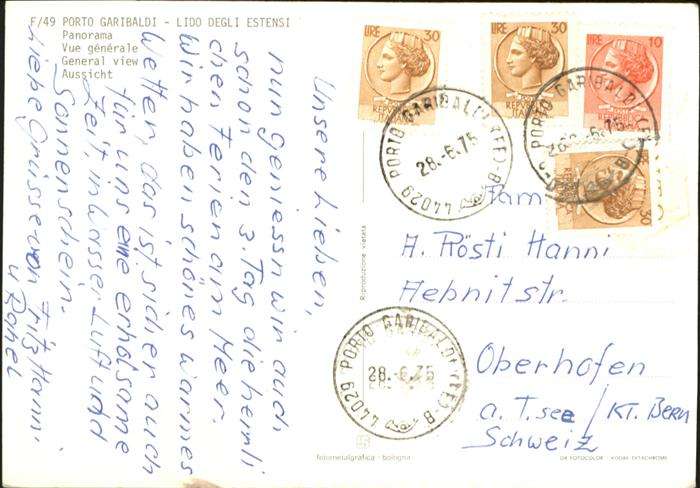 F/49 PORTO GARIBALDI - LIDO DEGLI ESTENSI
Panorama
Vue générale
General view
Aussicht
Unsere Lieben,
nun geniessn wir auch
schon den 3 Tag die heimli
chen Ferien am Meer.
Wir haben schönes warmes
Wetter, das ist sicher auch
für uns eine erholsame
Zeit, in Wasser Luft und
Sonnenschein.
Liebe Grüsse von Fritz Hanni
u Rahel
LIRE 30
LIRE 30
LIRE 10
30
REPVBBLICA
ITALIANA
44029 PORTO GARIBALDI (FE) - B
28.-6.75
28.-6.75
44029 PORTO GARIBALDI (FE) - B
28.-6.75
Fam
A. Rösti Hanni
Aebnitstr.
Oberhofen
a. T. see / KT. Bern
Schweiz
Riproduzione vietata
fotometalgrafica - bologna
DA FOTOCOLOR - KODAK EKTACHROME